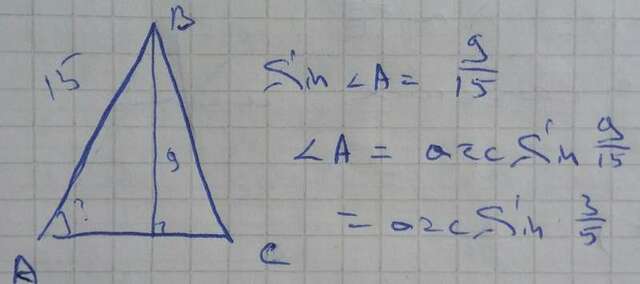 B
15
Sin ∠A = 9/15
9
∠A = arc Sin 9/15
?
= arc Sin 3/5
A
C